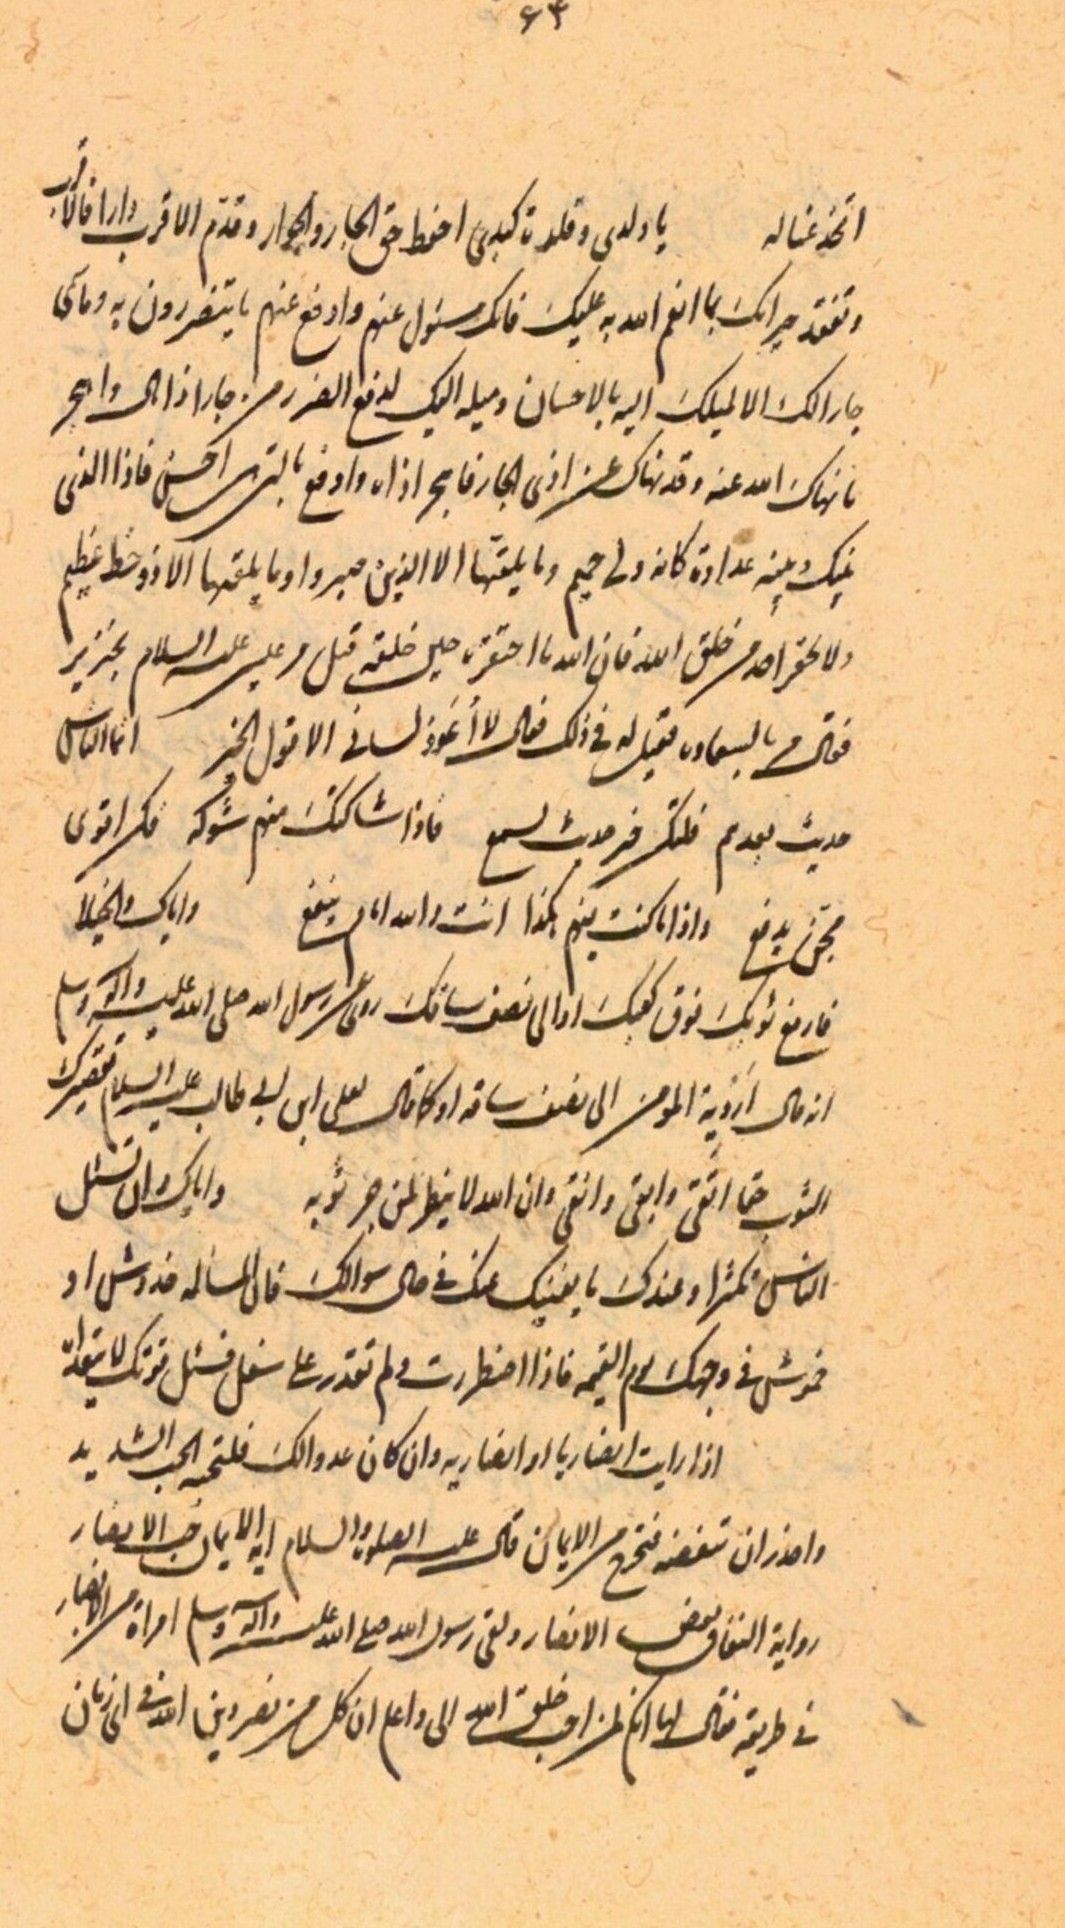 ۶۳
اتخذ عنا له یا ولدی وقلذة کبدی احفظ حق الجار والجوار وقدم الاقرب دارا فالاقرب
وتفقد جیرانک بما انعم الله به علیک فانک مسئول عنهم وادفع عنهم ما یتضررون به وما سمی
جارا لک الا لمیلک الیه بالاحسان ومیله الیک لدفع الضرر من جار اذا مال واهجر
ما نهاک الله عنه وقد نهاک عن اذی الجار فاهجر اذاه وادفع بالتی هی احسن فاذا الذی
بینک وبینه عداوة کانه ولی حمیم وما یلقّٰها الا الذین صبروا وما یلقها الا ذو حظ عظیم
ولا تحقر احدا من خلق الله فان الله ما احتقره حین خلقه قیل مر عیسی علیه السلام بخنزیر
فقال مر بالسعادة فقیل له فی ذلک فقال لا أعوّد لسانی الا قول الخیر انما الناس
حدیث بعدهم فلتکن خیر حدیث یسمع فاذا شاکتک منهم شوکه فکن اقوی
مجن یدفع واذا ما کنت بینهم هکذا انت والله امام ینفع وایاک والخیلا
فارفع ثوبک فوق کعبک او الی نصف ساقک روی عن رسول الله صلی الله علیه وآله وسلم
انه قال أزرة المومن الی نصف ساقه او کما قال لعلی ابن ابی طالب علیه السلام تقصیرک
الثوب حقا اتقی وابقی وانقی وان الله لا ینظر لمن جر ثوبه وایاک وان تسئل
الناس تکثرا وعندک ما یغنیک عنک فی حال سوالک فان المسأله خدوش او
خموش فی وجهک یوم القیمه فاذا اضطررت ولم تقدر علی شغل فسئل قوتک لا یتعداه
اذا رایت انصاریا او انصاریه وان کان عدوا لک فلتحبه الحب الشدید
واحذر ان تبغضه فتخرج من الایمان قال علیه الصلوة والسلام ایة الایمان حب الانصار
وایة النفاق بغض الانصار ولقی رسول الله صلی الله علیه وآله وسلم امراة من الانصار
فی طریقه فقال لها انکم لمن احب خلق الله الی واعلم ان کل من نصر دین الله فی ای زمان